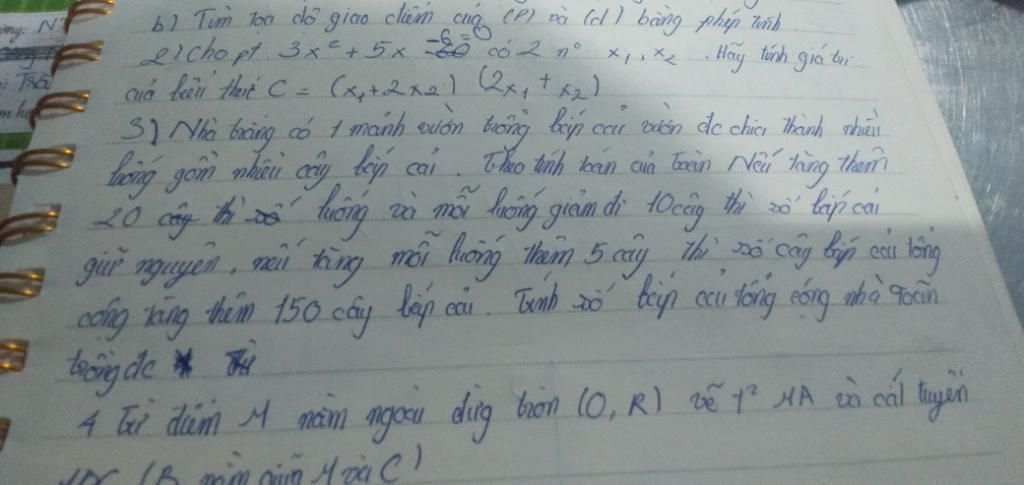 b) Tìm tọa độ giao điểm của (P) và (d) bằng phép tính
2) Cho pt 3x² + 5x - 6 = 0 có 2 n° x₁, x₂. Hãy tính giá trị
của biểu thức C = (x₁ + 2x₂) (2x₁ + x₂)
3) Nhà trường có 1 mảnh vườn trồng bắp cải vườn đc chia thành nhiều
luống gồm nhiều cây bắp cải. Theo tính toán của Toàn Nếu tăng thêm
20 luống và mỗi luống giảm đi 10 cây thì số bắp cải
giữ nguyên, nếu tăng mỗi luống thêm 5 cây thì số cây bắp cải tổng
cộng tăng thêm 150 cây bắp cải. Tính số bắp cải tổng cộng nhà Toàn
trồng đc
4 Từ điểm M nằm ngoài đừg tròn (O, R) vẽ t² MA và cát tuyến
(B nằm giữa M và C)